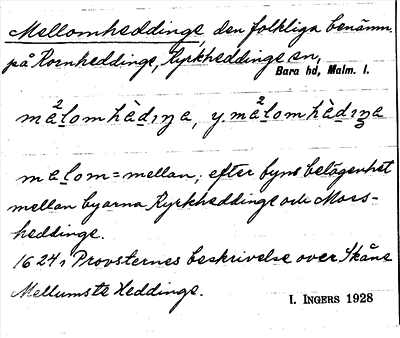 Mellomheddinge, den folkliga benämn.
på Kornheddinge, Kyrkheddinge sn,
Bara hd, Malm. l.
malomhèdıŋa, y malomhèdıŋa
malom = mellan; efter byns belägenhet
mellan byarna Kyrkheddinge och Moss-
heddinge.
1624, Provsternes beskrivelse over Skåne
Mellumste Heddinge.
I. INGERS 1928